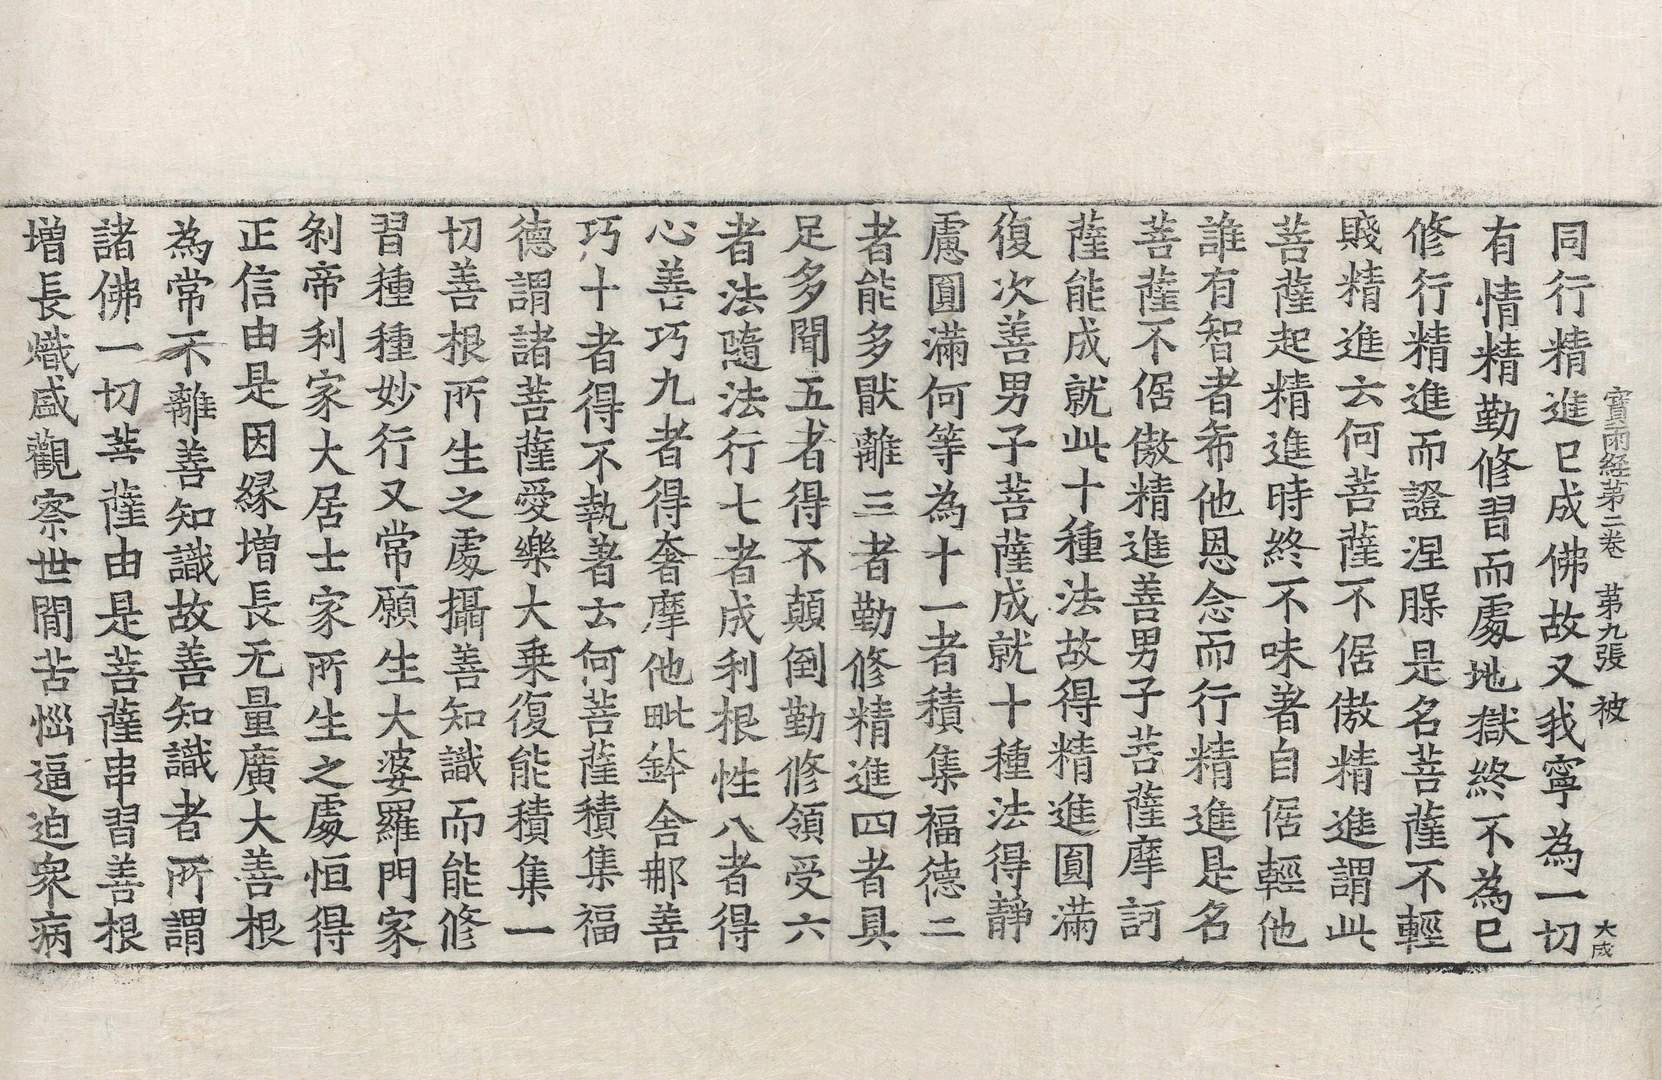 寶雨経苐二卷 苐九張 被 大成
同行精進已成佛故又我寧為一切
有情精勤修習而處地獄終不為已
修行精進而證涅槃是名菩薩不輕
賤精進云何菩薩不倨傲精進謂此
菩薩起精進時終不味著自倨輕他
誰有智者希他恩念而行精進是名
菩薩不倨傲精進善男子菩薩摩訶
薩能成就此十種法故得精進圓滿
復次善男子菩薩成就十種法得静
慮圓滿何等為十一者積集福德二
者能多猒離三者勤修精進四者具
足多聞五者得不顛倒勤修領受六
者法隨法行七者成利根性八者得
心善巧九者得奢摩他毗鉢舍那善
巧十者得不執著云何菩薩積集福
德謂諸菩薩愛樂大乗復能積集一
切善根所生之處攝善知識而能修
習種種妙行又常願生大婆羅門家
刹帝利家大居士家所生之處恒得
正信由是因緣增長无量廣大善根
為常不離善知識故善知識者所謂
諸佛一切菩薩由是菩薩串習善根
增長熾盛觀察世間苦惱逼迫衆病